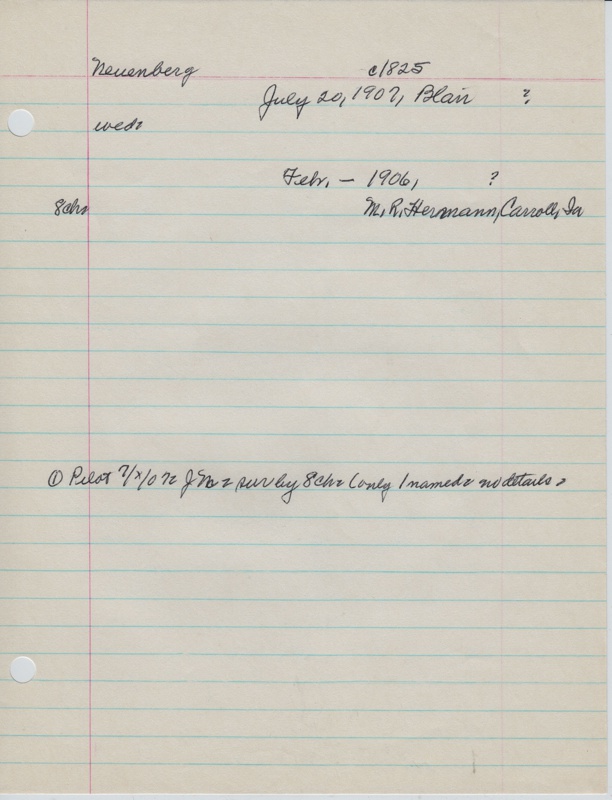 Neuenberg c1825
July 20, 1907, Blair ?
wed=
Febr. — 1906, ?
8chs M. R. Hermann, Carroll, Ia
① Pilot 7/x/07= J N= sur by 8ch= (only 1 named= no details=